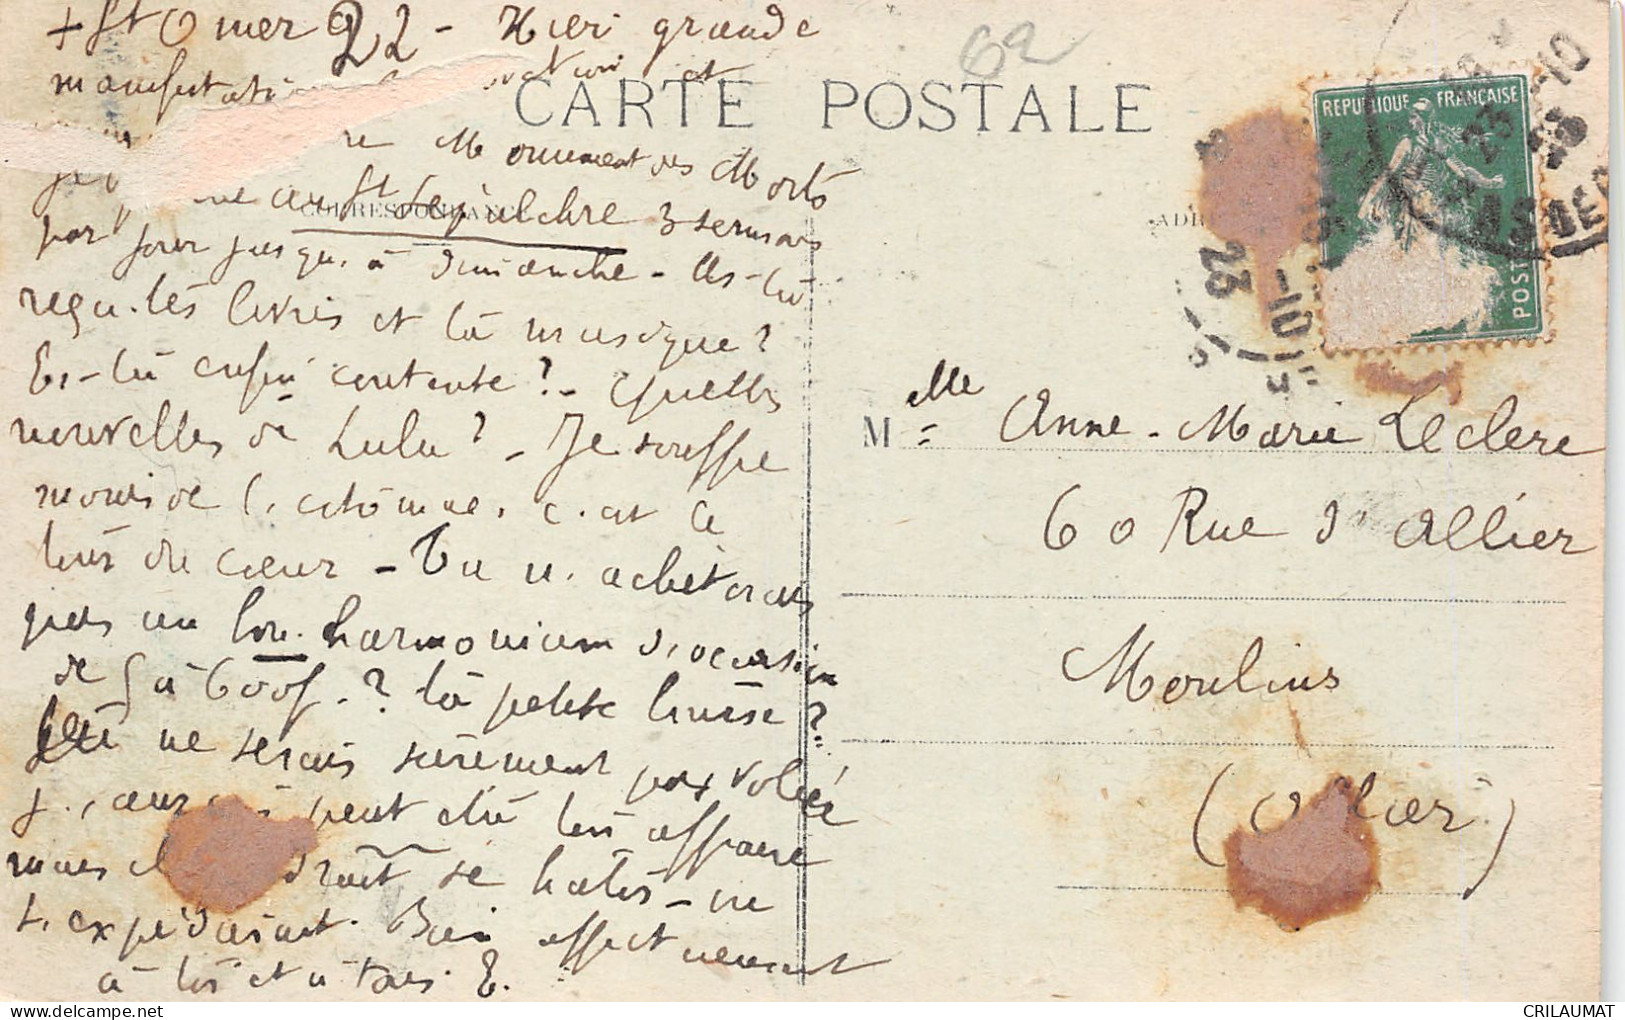 + St Omer 22 - Hier grande
manifestation et
Monument des Morts
au St Sépulchre 3 sermons
par jour jusqu'à dimanche - As-tu
reçu les livres et la musique ?
Es-tu enfin contente ? - Quelles
nouvelles de Lulu ? - Je souffre
moins de l'estomac, c'est le
du coeur - Tu n'achèterais
pas un bon harmonium d'occasion
de 5 à 600f. ? la petite Louise ?
ne serais sûrement pas volée
j'aurais peut être ton affaire
mais il faudrait se hâter - en
t'expédiant. Bien affectueusement
à toi et à tous E.
CARTE POSTALE
CORRESPONDANCE
62
REPUBLIQUE FRANÇAISE
POSTES
23
23
Mlle Anne-Marie Leclerc
60 Rue d'Allier
Moulins
(Allier)
CRILAUMAT